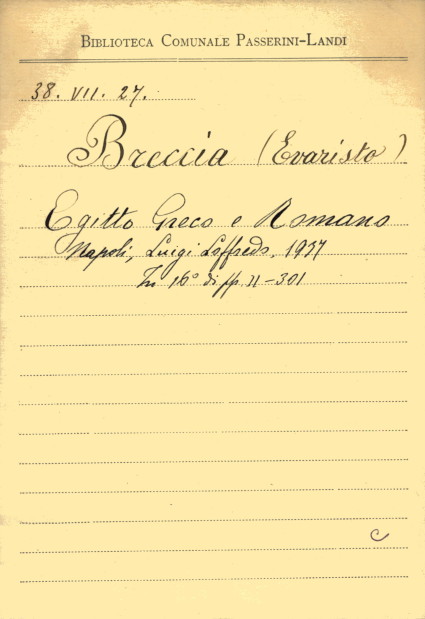 BIBLIOTECA COMUNALE PASSERINI-LANDI
38. VII. 27.
Breccia (Evaristo)
Egitto Greco e Romano
Napoli, Luigi Loffredo, 1937
In 16° di pp. II-301
C